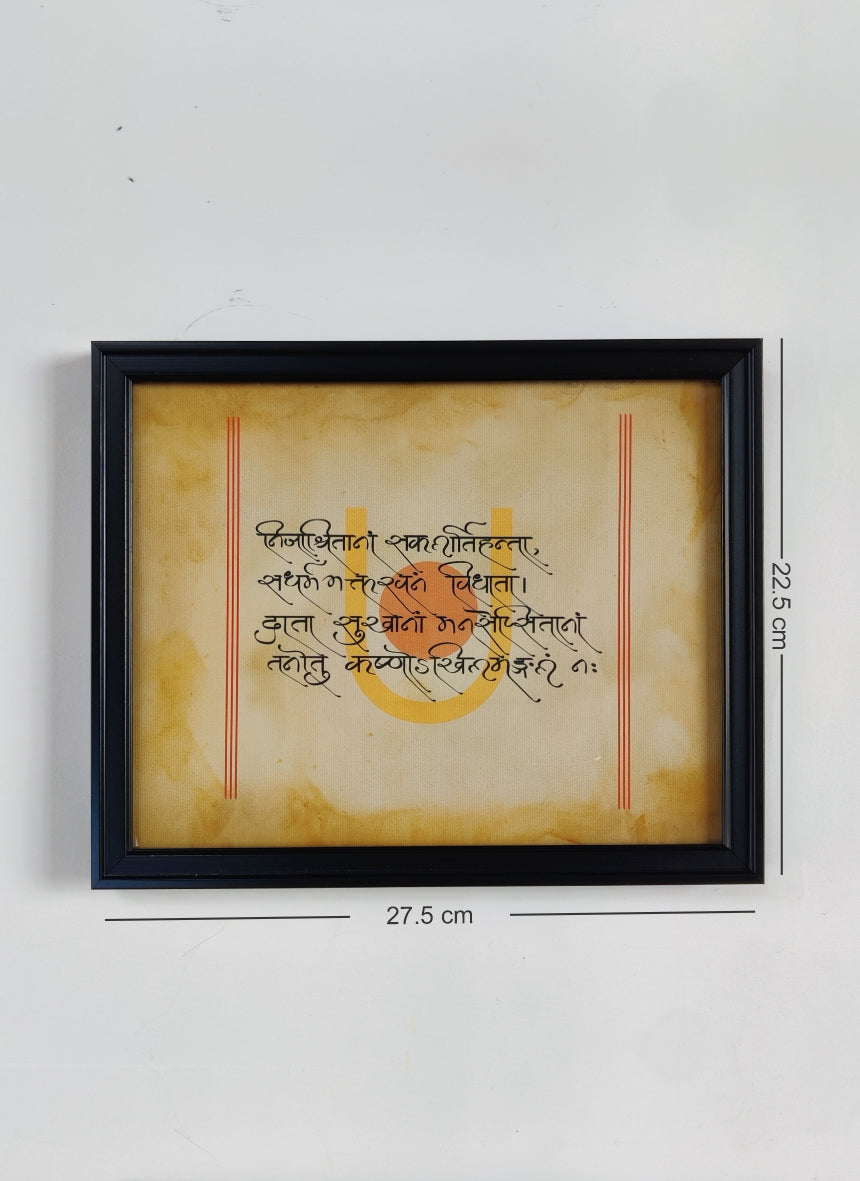 निजाश्रितानां सकलार्तिहन्ता,
सधर्मभक्तेरवनं विधाता।
दाता सुखानां मनसेप्सितानां
तनोतु कृष्णोऽखिलमङ्गलं नः
22.5 cm
27.5 cm